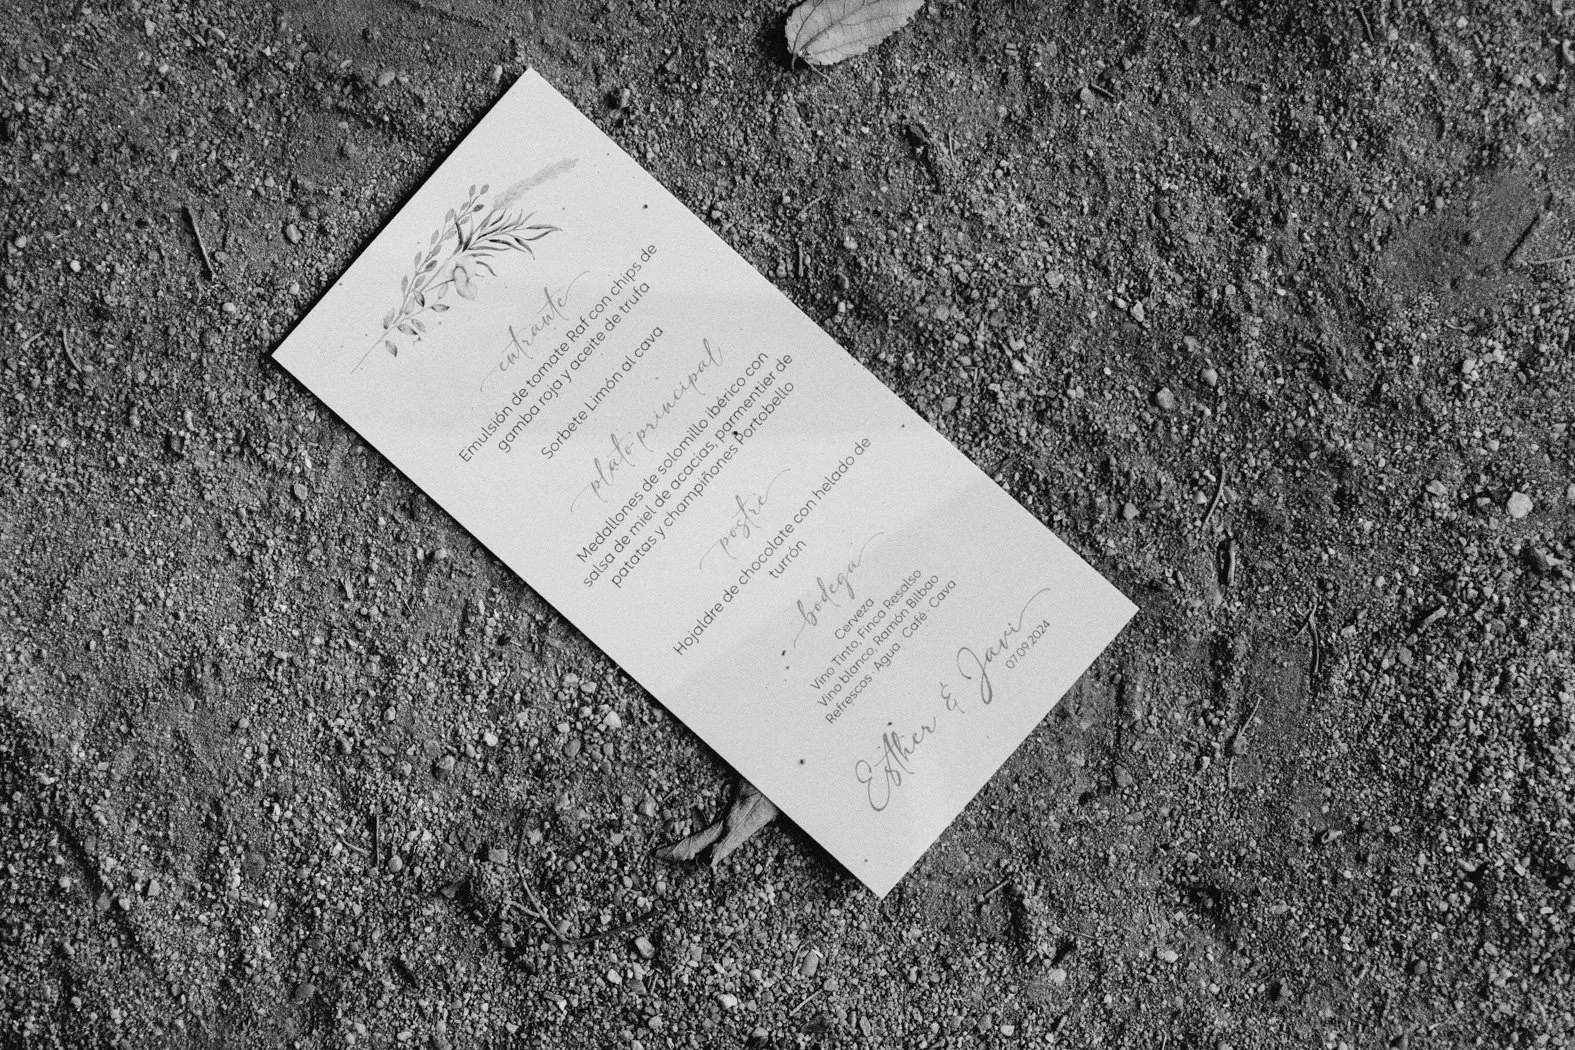 entrante
Emulsión de tomate Raf con chips de
gamba roja y aceite de trufa
Sorbete Limón al cava
plato principal
Medallones de solomillo ibérico con
salsa de miel de acacias, parmentier de
patatas y champiñones Portobello
postre
Hojaldre de chocolate con helado de
turrón
bodega
Cerveza
Vino Tinto, Finca Resalso
Vino blanco, Ramón Bilbao
Refrescos Agua Café Cava
Esther & Javi
07.09.2024